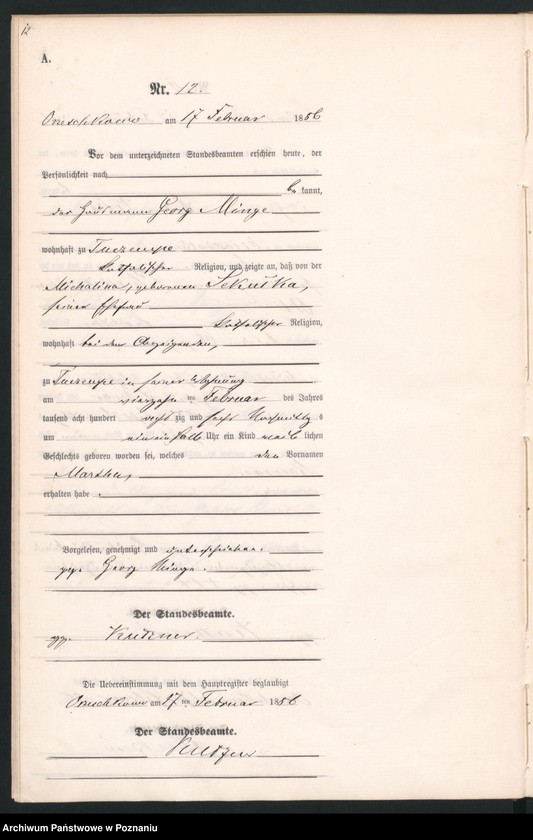 12
A.
Nr. 12.
Orzeschkowo am 17 Februar 1886
Vor dem unterzeichneten Standesbeamten erschien heute, der
Persönlichkeit nach
be kannt,
der Georg Minge
wohnhaft zu
katholischer Religion, und zeigte an, daß von der
Michalina, geborenen Sekuśka,
seiner Ehefrau
katholischer Religion,
wohnhaft bei dem Anzeigenden,
zu in seiner Wohnung
am vierzehn ten Februar des Jahres
tausend acht hundert acht zig und sechs Vormittag s
um ein ein halb Uhr ein Kind weib lichen
Geschlechts geboren worden sei, welches den Vornamen
Martha,
erhalten habe .
Vorgelesen, genehmigt und unterschrieben.
gez. Georg Minge.
Der Standesbeamte.
gez. Kutzner.
Die Uebereinstimmung mit dem Hauptregister beglaubigt
Orzeschkowo am 17 ten Februar 1886
Der Standesbeamte.
Kutzner
Archiwum Państwowe w Poznaniu